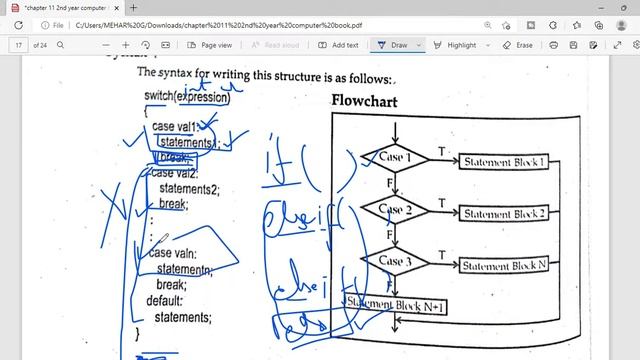 *chapter 11 2nd year computer
C:/Users/MEHAR%20G/Downloads/chapter%2011%202nd%20year%20computer%20book.pdf
17 of 24
Draw
The syntax for writing this structure is as follows:
int ch
switch(expression)
{
case val1:
statements1;
break;
case val2:
statements2;
break;
:
:
case valn:
statementn;
break;
default:
statements;
}
if ( )
else if (
else if
Flowchart
Case 1
T
Statement Block 1
F
Case 2
T
Statement Block 2
F
Case 3
T
Statement Block N
F
Statement Block N+1